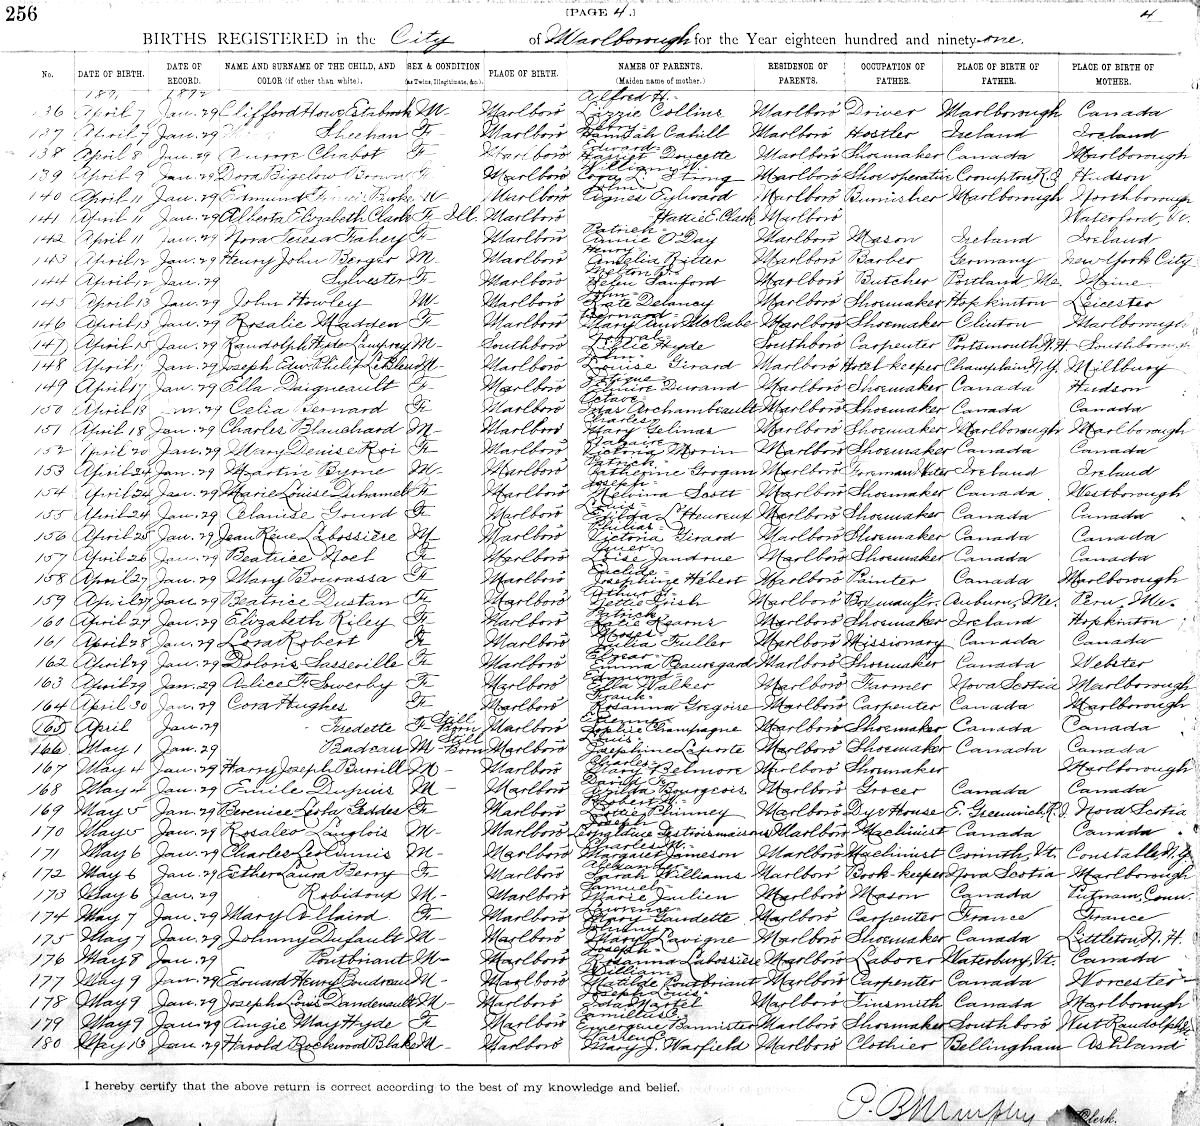 256 [PAGE 4.] 4
BIRTHS REGISTERED in the City of Marlborough for the Year eighteen hundred and ninety-one.
No. DATE OF BIRTH. DATE OF RECORD. NAME AND SURNAME OF THE CHILD, AND COLOR (if other than white). SEX & CONDITION (as Twins, Illegitimate, &c.). PLACE OF BIRTH. NAMES OF PARENTS. (Maiden name of mother.) RESIDENCE OF PARENTS. OCCUPATION OF FATHER. PLACE OF BIRTH OF FATHER. PLACE OF BIRTH OF MOTHER.
1891 1892
136 April 7 Jan. 29 Clifford Howe Estabrook M- Marlboro' Alfred H. Lizzie Collins Marlboro' Driver Marlborough Canada
137 April 7 Jan. 29 Sheehan F. Marlboro' Hannah Cahill Marlboro' Hostler Ireland Ireland
138 April 8 Jan. 29 Chabot F. Marlboro' Edward Harriet Doucette Marlboro' Shoemaker Canada Marlborough
139 April 9 Jan. 29 Dora Bigelow Brown F. Marlboro' Cora L. Marlboro' Shoe operative Crompton, R.I. Hudson
140 April 11 Jan. 29 Edmund M- Marlboro' John Agnes Aylward Marlboro' Burnisher Marlborough Northborough
141 April 11 Jan. 29 Alberta Elizabeth Clark F. Ill. Marlboro' Hattie E. Clark Marlboro' Waterford, Vt.
142 April 11 Jan. 29 Nora Teresa Fahey F. Marlboro' Patrick Annie O'Day Marlboro' Mason Ireland Ireland
143 April 12 Jan. 29 Henry John Berger M. Marlboro' Henry Amelia Ritter Marlboro' Barber Germany New York City
144 April 12 Jan. 29 Sylvester F. Marlboro' Helen Sanford Marlboro' Butcher Portland Me. Maine
145 April 13 Jan. 29 John Howley M- Marlboro' John Kate Delaney Marlboro' Shoemaker Hopkinton Leicester
146 April 13 Jan. 29 Rosalie Madden F. Marlboro' Bernard Mary Ann McCabe Marlboro' Shoemaker Clinton Marlborough
147 April 15 Jan. 29 Randolph Lamprey M- Southboro' Lillie Hyde Southboro' Carpenter Portsmouth N.H. Southborough
148 April 1 Jan. 29 Joseph Edw. Philip LeBleu M- Marlboro' John Louise Girard Marlboro' Hotel-keeper Champlain N.Y. Millbury
149 April 17 Jan. 29 Ella Daigneault F. Marlboro' Durand Marlboro' Shoemaker Canada Hudson
150 April 18 Jan. 29 Celia Bernard F. Marlboro' Octave Archambeault Marlboro' Shoemaker Canada Canada
151 April 18 Jan. 29 Charles Blanchard M- Marlboro' Charles Mary Gelinas Marlboro' Shoemaker Marlborough Marlborough
152 April 20 Jan. 29 Mary Denise Roi F. Marlboro' Victoria Morin Marlboro' Shoemaker Canada Canada
153 April 24 Jan. 29 Martin Byrne M. Marlboro' Patrick Catherine Grogan Marlboro' Ireland Ireland
154 April 24 Jan. 29 Marie Louise Duhamel F. Marlboro' Joseph Melvina Scott Marlboro' Shoemaker Canada Westborough
155 April 24 Jan. 29 Celanise Gourd F. Marlboro' Louis L'Heureux Marlboro' Shoemaker Canada Canada
156 April 25 Jan. 29 Jean Réne Labossiere M Marlboro' Philias Victoria Girard Marlboro' Shoemaker Canada Canada
157 April 26 Jan. 29 Beatrice Noel F. Marlboro' Jandrue Marlboro' Shoemaker Canada Canada
158 April 27 Jan. 29 Mary Bourassa F. Marlboro' Euclide Josephine Hébert Marlboro' Painter Canada Marlborough
159 April 27 Jan. 29 Beatrice Dustan F. Marlboro' Arthur Nettie Irish Marlboro' Box manufr. Auburn, Me. Peru, Me.
160 April 27 Jan. 29 Elizabeth Riley F. Marlboro' Patrick Katie Kearns Marlboro' Shoemaker Ireland Hopkinton
161 April 28 Jan. 29 Lora Robert F. Marlboro' Moses Fuller Marlboro' Missionary Canada Canada
162 April 29 Jan. 29 Doloris Lasseville F. Marlboro' Elzear Emma Beauregard Marlboro' Shoemaker Canada Webster
163 April 29 Jan. 29 Alice F. Swerby F. Marlboro' Edmund Ella Walker Marlboro' Farmer Nova Scotia Marlborough
164 April 30 Jan. 29 Cora Hughes F. Marlboro' Frank Rosanna Gregoire Marlboro' Carpenter Canada Marlborough
165 April Jan. 29 Fredette F- Still Born Marlboro' Etienne Sophie Champagne Marlboro' Shoemaker Canada Canada
166 May 1 Jan. 29 Badeau M- Still Born Marlboro' Louis Josephine Laporte Marlboro' Shoemaker Canada Canada
167 May 4 Jan. 29 Harry Joseph Burrill M- Marlboro' Charles Mary Belmore Marlboro' Shoemaker Marlborough
168 May 4 Jan. 29 Emile Dupuis M- Marlboro' David F. Bourgeois Marlboro' Grocer Canada Canada
169 May 5 Jan. 29 Berenice Leska Geddes F. Marlboro' Robert W. Lottie Phinney Marlboro' Dye House E. Greenwich, R.I. Nova Scotia
170 May 5 Jan. 29 Rosaleo Langlois M- Marlboro' Joseph Marlboro' Machinist Canada Canada
171 May 6 Jan. 29 Charles Leo M- Marlboro' Charles M. Margaret Jameson Marlboro' Machinist Corinth, Vt. Constable, N.Y.
172 May 6 Jan. 29 Esther Laura Berry F. Marlboro' Sarah Williams Marlboro' Book-keeper Nova Scotia Marlborough
173 May 6 Jan. 29 Robidoux M- Marlboro' Samuel Marie Julien Marlboro' Mason Canada Putnam, Conn.
174 May 7 Jan. 29 Mary Allaird F. Marlboro' Mary Gaudette Marlboro' Carpenter France France
175 May 7 Jan. 29 Johnny Dufault M- Marlboro' Johnny Mary Lavigne Marlboro' Shoemaker Canada Littleton N.H.
176 May 8 Jan. 29 Pontbriant M- Marlboro' Joseph Rosanna Labossiere Marlboro' Laborer Waterbury, Vt. Canada
177 May 9 Jan. 29 Edouard Henry Boudreau M- Marlboro' William Matilde Pontbriant Marlboro' Carpenter Canada Worcester
178 May 9 Jan. 29 Joseph Louis Dandenault M- Marlboro' Joseph Louis Rosa Martel Marlboro' Tinsmith Canada Marlborough
179 May 9 Jan. 29 Angie May Hyde F. Marlboro' Camillus C. Emergene Bannister Marlboro' Shoemaker Southboro' West Randolph
180 May 13 Jan. 29 Harold Rockwood Blake M- Marlboro' Warren Mary J. Warfield Marlboro' Clothier Bellingham Ashland
I hereby certify that the above return is correct according to the best of my knowledge and belief.
P. B. Murphy Clerk.